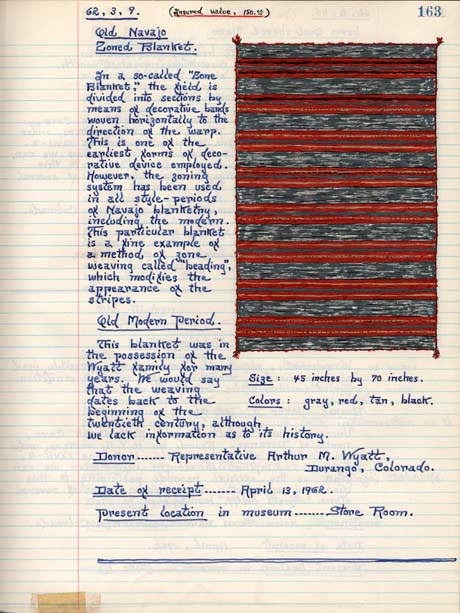 62, 3, 9.
(Insured value, 150.00)
163
Old Navajo
Zoned Blanket.
In a so-called "Zone
Blanket," the field is
divided into sections by
means of decorative bands
woven horizontally to the
direction of the warp.
This is one of the
earliest forms of deco-
rative device employed.
However, the zoning
system has been used
in all style-periods
of Navajo blanketry,
including the modern.
This particular blanket
is a fine example of
a method of zone
weaving called "beading",
which modifies the
appearance of the
stripes.
Old Modern Period.
This blanket was in
the possession of the
Wyatt family for many
years. We would say
that the weaving
dates back to the
beginning of the
twentieth century, although
we lack information as to its history.
Size: 45 inches by 70 inches.
Colors: gray, red, tan, black.
Donor ------- Representative Arthur M. Wyatt,
Durango, Colorado.
Date of receipt ------- April 13, 1962.
Present location in museum ------- Store Room.